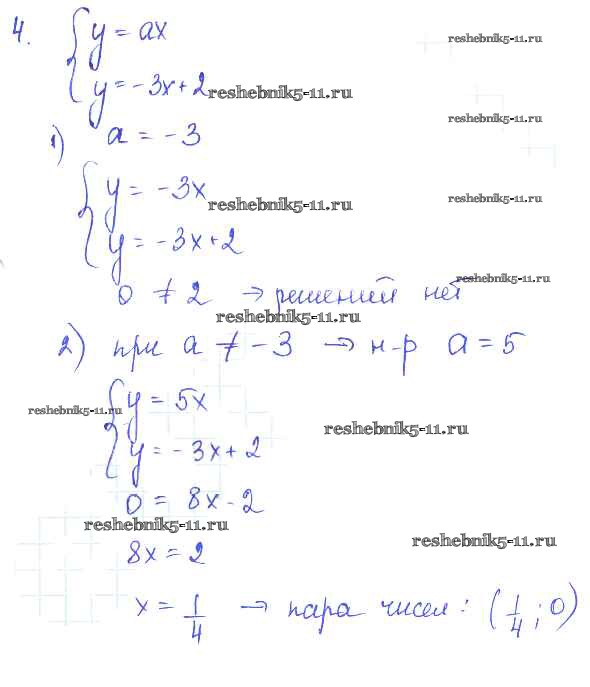 4. { y = ax
reshebnik5-11.ru
y = -3x + 2 reshebnik5-11.ru
reshebnik5-11.ru
1) a = -3
{ y = -3x
reshebnik5-11.ru reshebnik5-11.ru
y = -3x + 2
reshebnik5-11.ru
0 ≠ 2 → решений нет
reshebnik5-11.ru
2) при a ≠ -3 → н-р a = 5
{ y = 5x
reshebnik5-11.ru
reshebnik5-11.ru
y = -3x + 2
0 = 8x - 2
reshebnik5-11.ru
reshebnik5-11.ru
8x = 2
x = 1/4 → пара чисел: (1/4; 0)